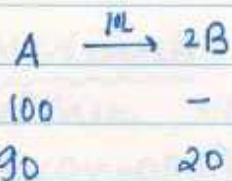 A 10% → 2B
100 -
90 20